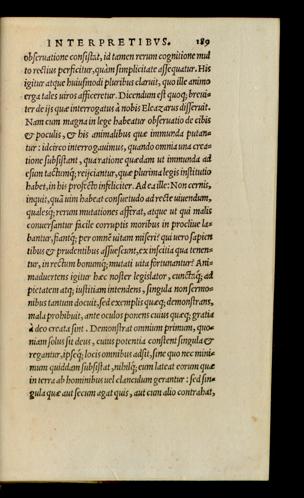 INTERPRETIBVS. 189
obseruatione consistat, id tamen rerum cognitione mul
to rectius perficitur, quàm simplicitate assequatur. His
igitur atque huiusmodi pluribus claruit, quo ille animo
erga tales uiros afficeretur. Dicendum est quoq; breui-
ter de ijs quæ interrogatus à nobis Eleazarus disseruit.
Nam cum magna in lege habeatur obseruatio de cibis
& poculis, & his animalibus quæ immunda putan-
tur: id circo interrogauimus, quando omnia una crea-
tione subsistant, qua ratione quædam ut immunda ad
esum tactumq; reijciantur, quæ plurima legis institutio
habet, in his profectò infiliciter. Ad ea ille: Non cernis,
inquit, quã uim habeat consuetudo ad recte uiuendum,
qualesq; rerum mutationes afferat, atque ut qui malis
conuersantur facile corruptis moribus in procliue la-
bantur, fiantq; per omnē uitam miseri? qui uero sapien
tibus & prudentibus assuescunt, ex inscitia qua tenen-
tur, in rectum bonumq; mutati uita fortunantur? Ani-
maduertens igitur hæc noster legislator, cunctaq; ad
pietatem atq; iustitiam intendens, singula non sermo-
nibus tantum docuit, sed exemplis quæq; demonstrans,
mala prohibuit, ante oculos ponens cuius quæq; gratia
à deo creata sint. Demonstrat omnium primum, quo-
niam solus sit deus, cuius potentia constent singula &
regantur, ipseq; locis omnibus adsit, sine quo nec mini-
mum quiddam subsistat, nihilq; eum lateat eorum quæ
in terra ab hominibus uel clanculum gerantur: sed sin-
gula quæ aut secum agat quis, aut cum alio contrahat,